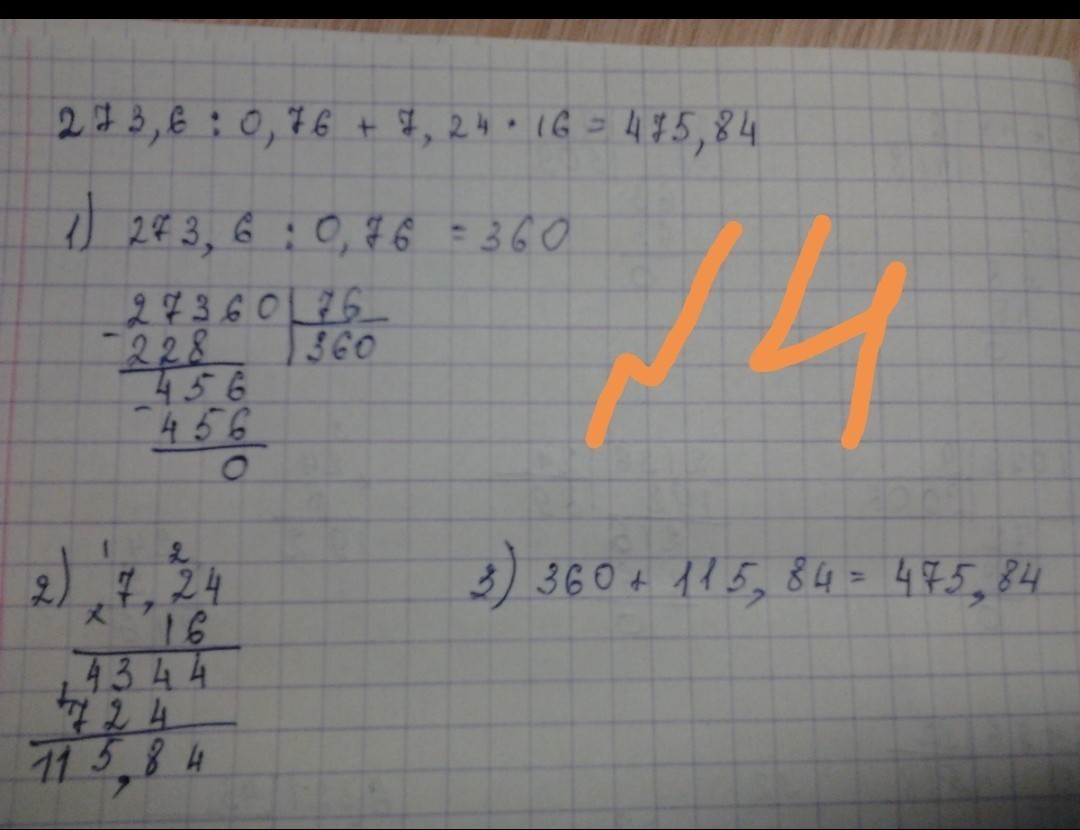 273,6 : 0,76 + 7,24 · 16 = 475,84
1) 273,6 : 0,76 = 360
27360 | 76
- 228 | 360
456
- 456
0
№4
1 2
2) × 7,24
16
4344
+ 724
115,84
3) 360 + 115,84 = 475,84